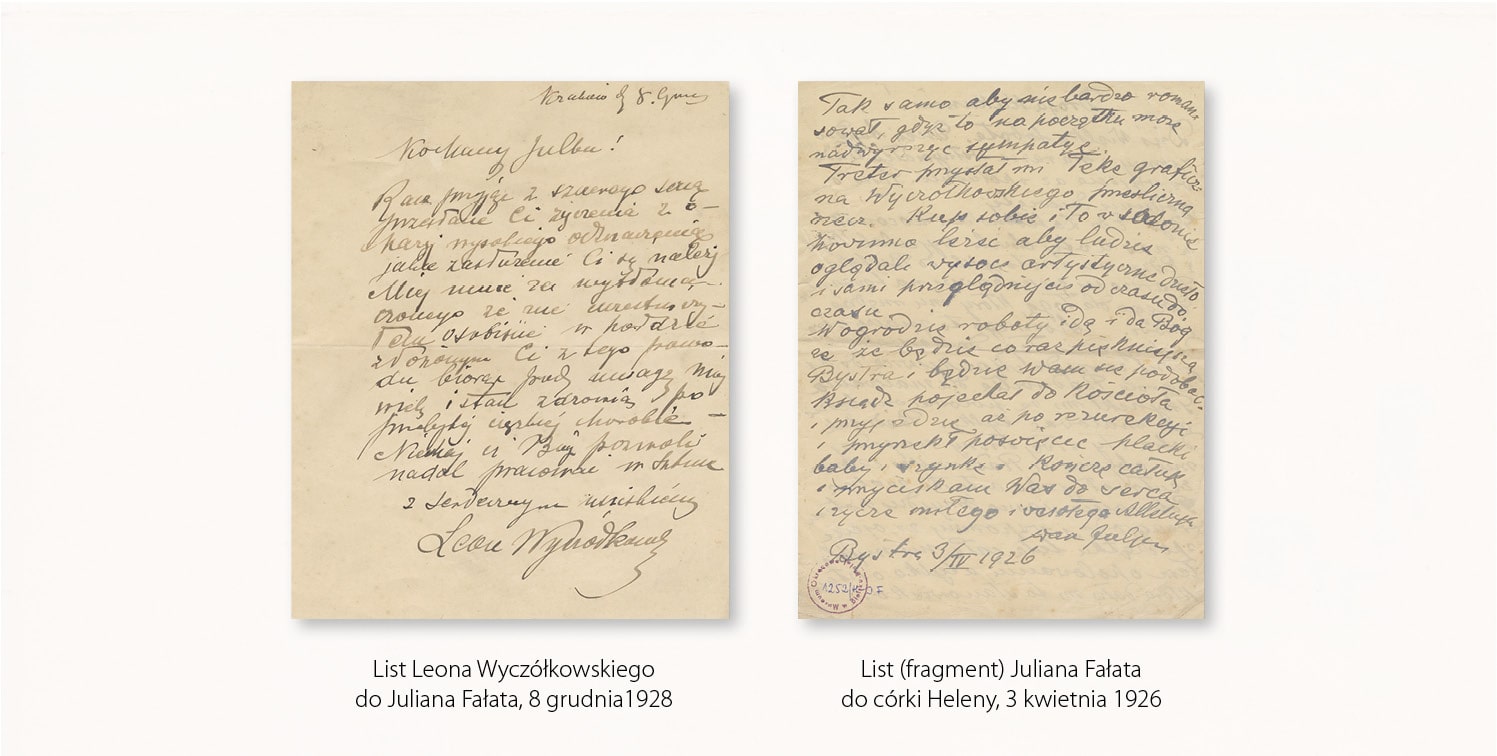 Kraków d 8. Grud
Kochany Julku!
Racz przyjąć z szczerego serca
przesłane Ci życzenia z o-
kazji wysokiego odznaczenia
jakie zasłużenie Ci się należy
Miej mnie za wytłoma-
czonego że nie uczestniczy-
łem osobiście w hołdzie
złożonym Ci z tego powo-
du biorąc pod uwagę mój
wiek i stan zdrowia po
przebytej ciężkiej chorobie –
Niechaj ci Bóg pozwoli
nadal pracować w sztuce
z serdecznym uściskiem
Leon Wyczółkowski
Tak samo aby nie bardzo roman-
sował, gdyż to na początku może
nadwyrężyć sympatyę.
Treter przysłał mi Tekę graficz-
na Wyczółkowskiego prześliczną
rzecz. Kup sobie i To v salonie
powinno leżeć aby ludzie
oglądali wysoce artystyczne dzieło
i sami przeglądnijcie od czasu do
czasu
W ogrodzie roboty idą i da Bóg
że że będzie coraz piękniejsza
Bystra i będzie Wam się podobać.
Ksiądz pojechał do Kościoła
i przyjedzie aż po rezurekcyi
i przyrzekł poświęcić placki
baby i szynkę. Kończę całuję
i przyciskam Was do serca
i życzę miłego i wesołego Alleluja
Wasz Julian
Bystra 3/IV 1926
1252
O.F.
List Leona Wyczółkowskiego
do Juliana Fałata, 8 grudnia1928
List (fragment) Juliana Fałata
do córki Heleny, 3 kwietnia 1926